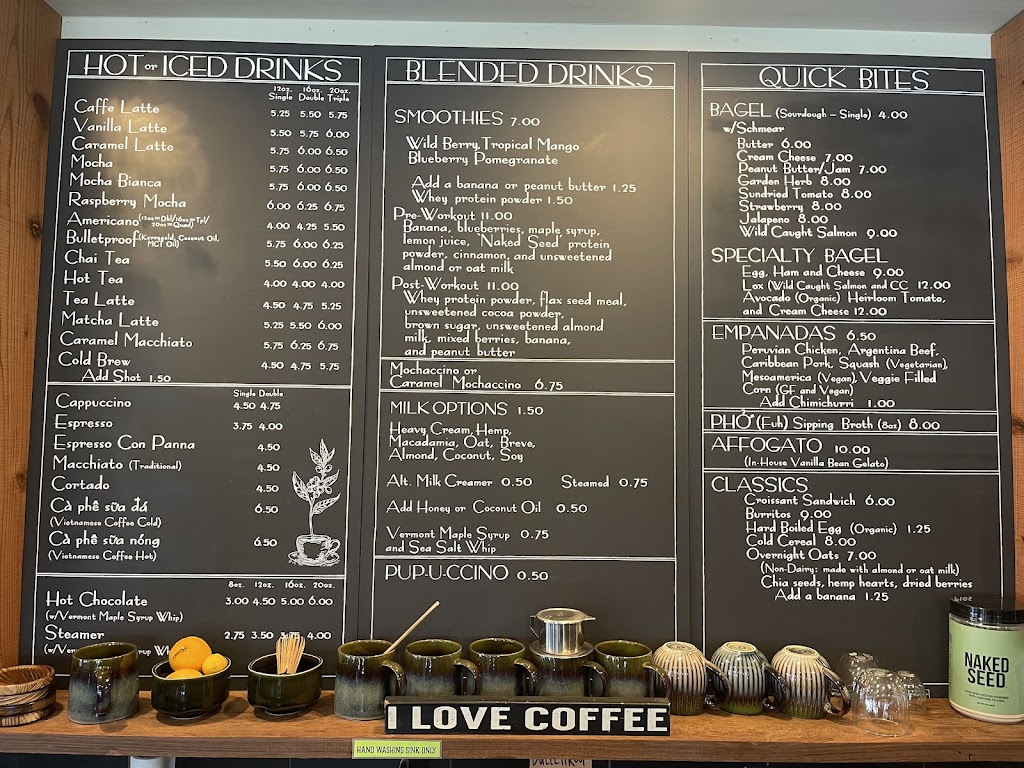 HOT or ICED DRINKS
12oz. 16oz. 20oz.
Single Double Triple
Caffe Latte 5.25 5.50 5.75
Vanilla Latte 5.50 5.75 6.00
Caramel Latte 5.75 6.00 6.50
Mocha 5.75 6.00 6.50
Mocha Bianca 5.75 6.00 6.50
Raspberry Mocha 6.00 6.25 6.75
Americano (12oz=Dbl/16oz=Tpl/ 20oz=Quad) 4.00 4.25 5.50
Bulletproof (Kerrygold, Coconut Oil, MCT Oil) 5.75 6.00 6.25
Chai Tea 5.50 6.00 6.25
Hot Tea 4.00 4.00 4.00
Tea Latte 4.50 4.75 5.25
Matcha Latte 5.25 5.50 6.00
Caramel Macchiato 5.75 6.25 6.75
Cold Brew 4.50 4.75 5.75
Add Shot 1.50
Single Double
Cappuccino 4.50 4.75
Espresso 3.75 4.00
Espresso Con Panna 4.50
Macchiato (Traditional) 4.50
Cortado 4.50
Cà phê sữa đá 6.50
(Vietnamese Coffee Cold)
Cà phê sữa nóng 6.50
(Vietnamese Coffee Hot)
8oz. 12oz. 16oz. 20oz.
Hot Chocolate 3.00 4.50 5.00 6.00
(w/Vermont Maple Syrup Whip)
Steamer 2.75 3.50 4.00
BLENDED DRINKS
SMOOTHIES 7.00
Wild Berry, Tropical Mango
Blueberry Pomegranate
Add a banana or peanut butter 1.25
Whey protein powder 1.50
Pre-Workout 11.00
Banana, blueberries, maple syrup,
lemon juice, "Naked Seed" protein
powder, cinnamon, and unsweetened
almond or oat milk
Post-Workout 11.00
Whey protein powder, flax seed meal,
unsweetened cocoa powder,
brown sugar, unsweetened almond
milk, mixed berries, banana,
and peanut butter
Mochaccino or
Caramel Mochaccino 6.75
MILK OPTIONS 1.50
Heavy Cream, Hemp,
Macadamia, Oat, Breve,
Almond, Coconut, Soy
Alt. Milk Creamer 0.50 Steamed 0.75
Add Honey or Coconut Oil 0.50
Vermont Maple Syrup 0.75
and Sea Salt Whip
PUP-U-CCINO 0.50
QUICK BITES
BAGEL (Sourdough - Single) 4.00
w/Schmear
Butter 6.00
Cream Cheese 7.00
Peanut Butter/Jam 7.00
Garden Herb 8.00
Sundried Tomato 8.00
Strawberry 8.00
Jalapeno 8.00
Wild Caught Salmon 9.00
SPECIALTY BAGEL
Egg, Ham and Cheese 9.00
Lox (Wild Caught Salmon and CC 12.00
Avocado (Organic) Heirloom Tomato,
and Cream Cheese 12.00
EMPANADAS 6.50
Peruvian Chicken, Argentina Beef,
Caribbean Pork, Squash (Vegetarian),
Mesoamerica (Vegan), Veggie Filled
Corn (GF and Vegan)
Add Chimichurri 1.00
PHỞ (Fuh) Sipping Broth (8oz) 8.00
AFFOGATO 10.00
(In-House Vanilla Bean Gelato)
CLASSICS
Croissant Sandwich 6.00
Burritos 9.00
Hard Boiled Egg (Organic) 1.25
Cold Cereal 8.00
Overnight Oats 7.00
(Non-Dairy: made with almond or oat milk)
Chia seeds, hemp hearts, dried berries
Add a banana 1.25
NAKED
SEED
I LOVE COFFEE
HAND WASHING SINK ONLY